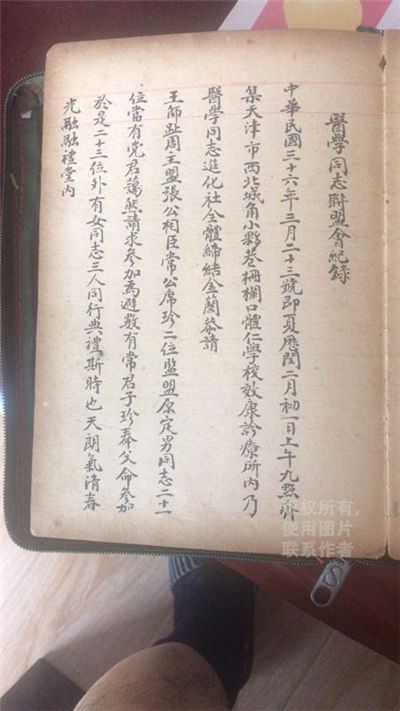 醫學同志聯盟會紀錄
中華民國三十六年三月二十三號即夏厯閏二月初一日上午九點齊
集天津市西北城角小夥巷柵欄口體仁學校效康診療所内乃
醫學同志進化社全體締結金蘭恭請
王師趾周主盟張公相臣常公席珍二位監盟原定男同志二十一
位當有党君藹然請求參加為遊数有常君子珍奉父命參加
於是二十三位外有女同志三人同行典禮斯時也天朗氣清春
光融融禮堂内
版权所有,
使用图片
联系作者